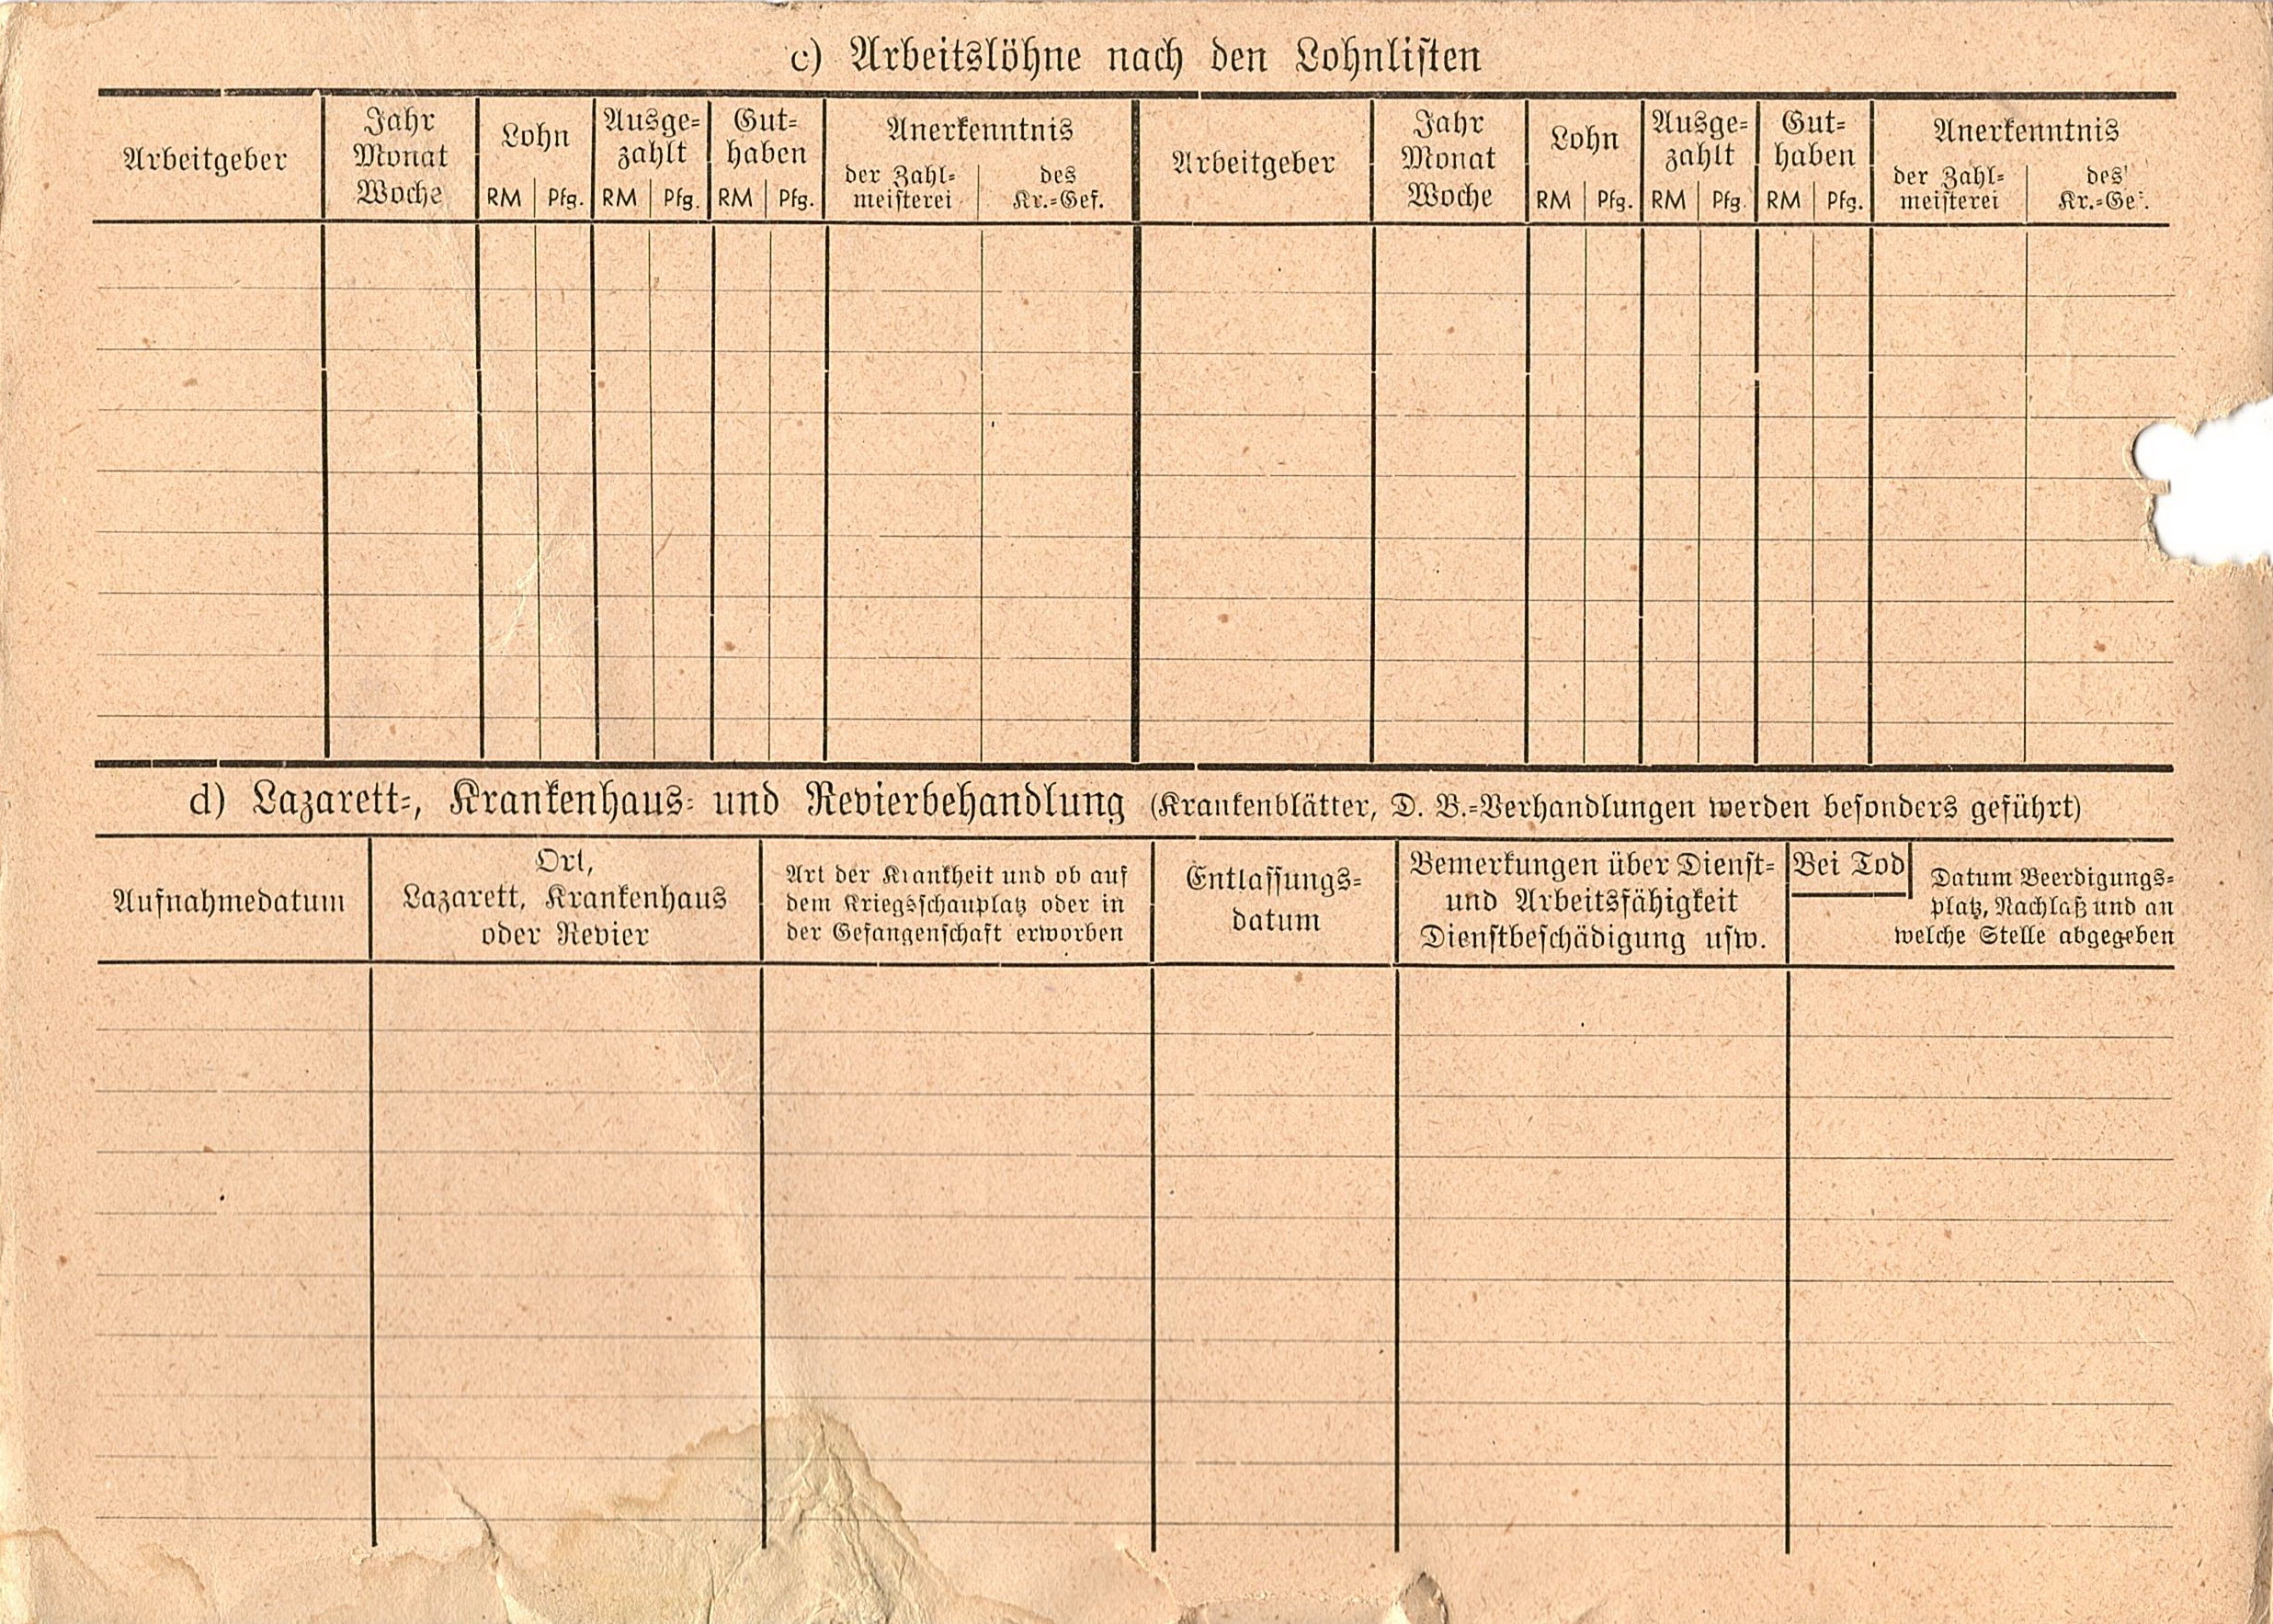 c) Arbeitslöhne nach den Lohnlisten
Arbeitgeber
Jahr
Monat
Woche
Lohn
RM Pfg.
Ausge-
zahlt
RM Pfg.
Gut-
haben
RM Pfg.
Anerkenntnis
der Zahl-
meisterei
des
Kr.-Gef.
Arbeitgeber
Jahr
Monat
Woche
Lohn
RM Pfg.
Ausge-
zahlt
RM Pfg.
Gut-
haben
RM Pfg.
Anerkenntnis
der Zahl-
meisterei
des
Kr.-Gef.
d) Lazarett-, Krankenhaus- und Revierbehandlung (Krankenblätter, D. B.-Verhandlungen werden besonders geführt)
Aufnahmedatum
Ort,
Lazarett, Krankenhaus
oder Revier
Art der Krankheit und ob auf
dem Kriegsschauplatz oder in
der Gefangenschaft erworben
Entlassungs-
datum
Bemerkungen über Dienst-
und Arbeitsfähigkeit
Dienstbeschädigung usw.
Bei Tod
Datum Beerdigungs-
platz, Nachlaß und an
welche Stelle abgegeben